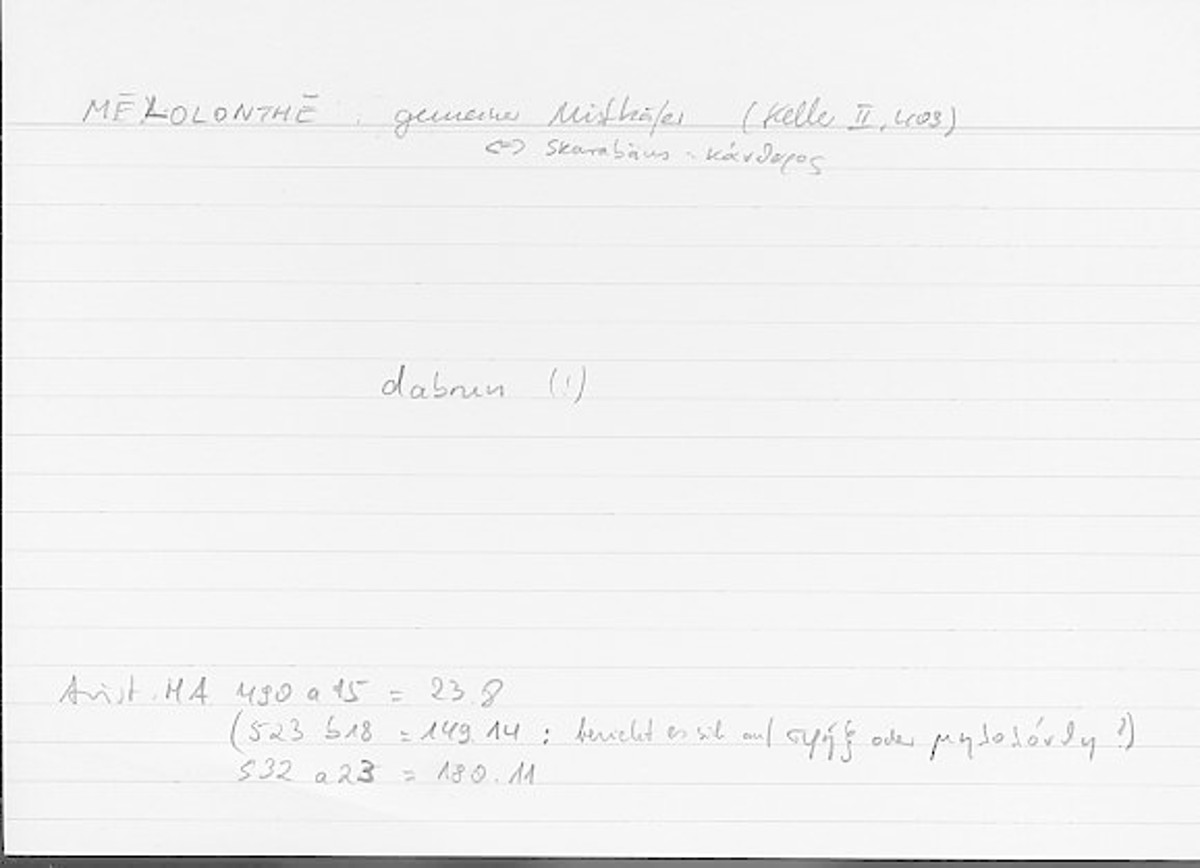 MĒLOLONTHĒ : gemeiner Mistkäfer (Keller II, 409)
<=> Skarabäus = κάνθαρος
dabrun (!)
Arist. HA 490 a 15 = 23.8
(523 b18 = 149.14 : bezieht es sich auf σφήξ oder μηλολόνθη ?)
532 a 23 = 180.11